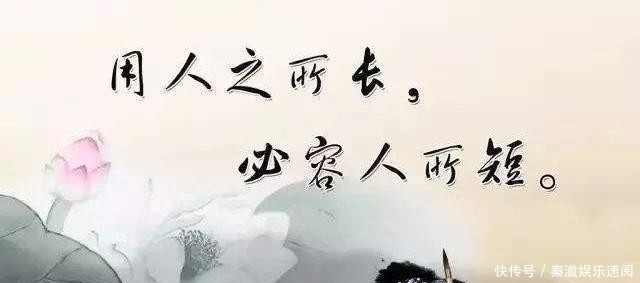 用人之所长，
必容人所短。
快传号／秦澈娱乐速阅